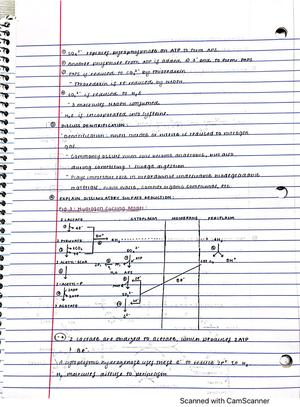 ① SO₄²⁻ replaces pyrophosphate on ATP to form APS
② Another phosphate from ATP is added @ 3' end to form PAPS
③ PAPS is reduced to SO₃²⁻ by thioredoxin
- Thioredoxin is re-reduced by NADPH
④ SO₃²⁻ is reduced to H₂S
- 3 molecules NADPH consumed
H₂S is incorporated into cysteine.
DISCUSS DENITRIFICATION:
Denitrification: when nitrate or nitrite is reduced to nitrogen
gas.
- Commonly occurs when soil become anaerobic, but also
during composting & sludge digestion
- Plays important role in breakdown undesirable biodegradable
EXPLAIN DISSIMILATORY SULFUR REDUCTION:
Fig 3: Hydrogen Cycling Model
2-LACTATE
CYTOPLASM
MEMBRANE
PERIPLASM
2 PYRUVATE
2 ACETYL-CoA
2-ACETYL-P
2 ACETATE
2 Lactate are oxidized to acetate, which produces 2ATP
& 8e⁻
A cytoplasmic hydrogenase uses these e⁻ to reduce H⁺ to H₂
H₂ molecules diffuse to periplasm
Scanned with CamScanner